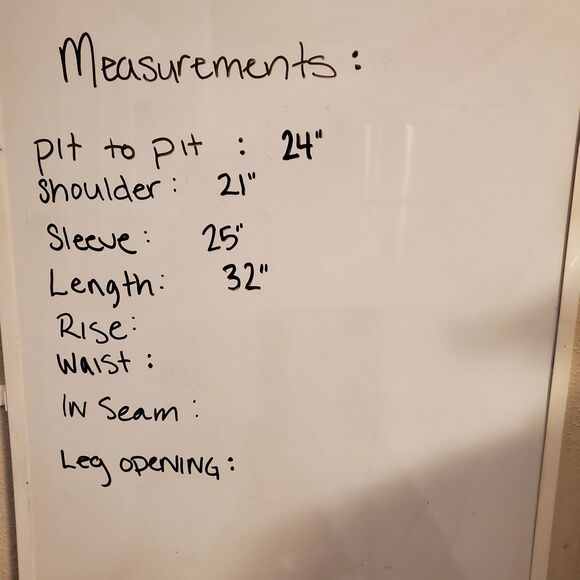 Measurements:
pit to pit : 24"
Shoulder: 21"
Sleeve: 25"
Length: 32"
Rise:
Waist:
In Seam:
Leg opening: